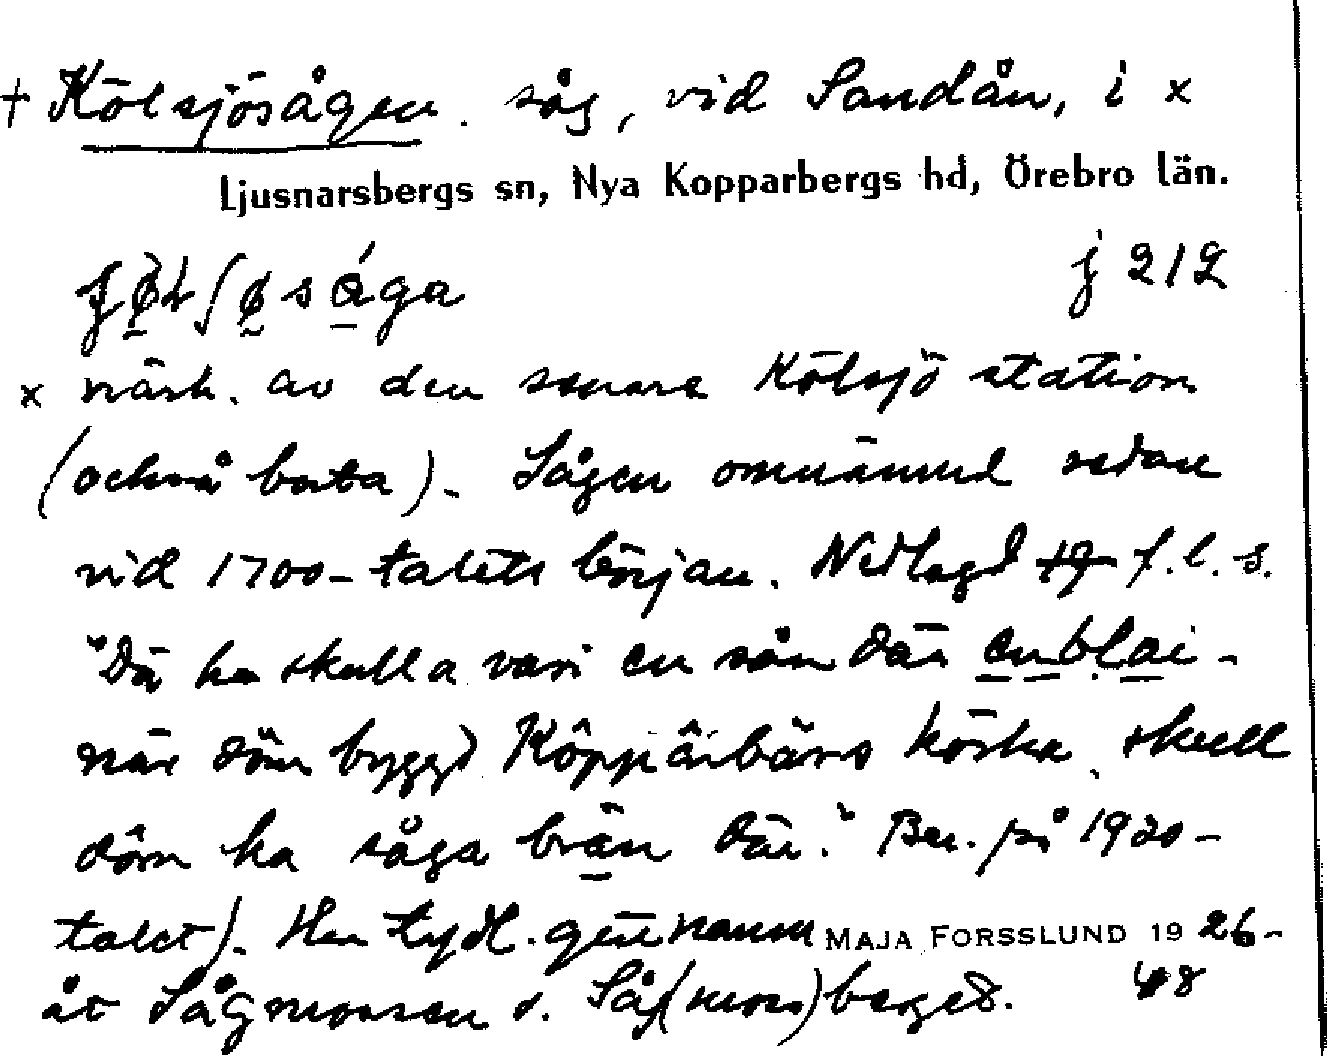 † Kölsjösågen. såg, vid Sandån, i x
Ljusnarsbergs sn, Nya Kopparbergs hd, Örebro län.
j 212
x närh. av den senare Kölsjö station
(också borta). Sågen omnämnd redan
vid 1700-talets början. Nedlagd f.l.s.
"Dä ha skulla vari en sån där enblai-
när döm byggd Köppärbärs körka, skull
döm ha såga brän där." Ber. på 1920-
talet). Har tydl. gett namn MAJA FORSSLUND 19 26-
åt Sågmossen o. Såg(moss)berget. 48